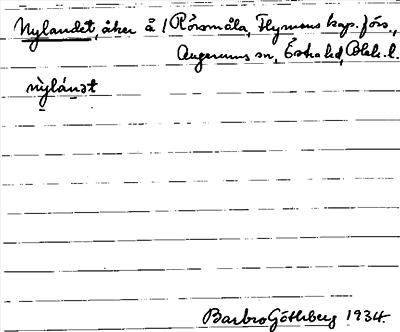 Nylandet, åker å 1 Rörsmåla, Flymens kap. förs.,
Augerums sn, Östra hd, Blek. l.
nỳlándt
Barbro Göthberg 1934.